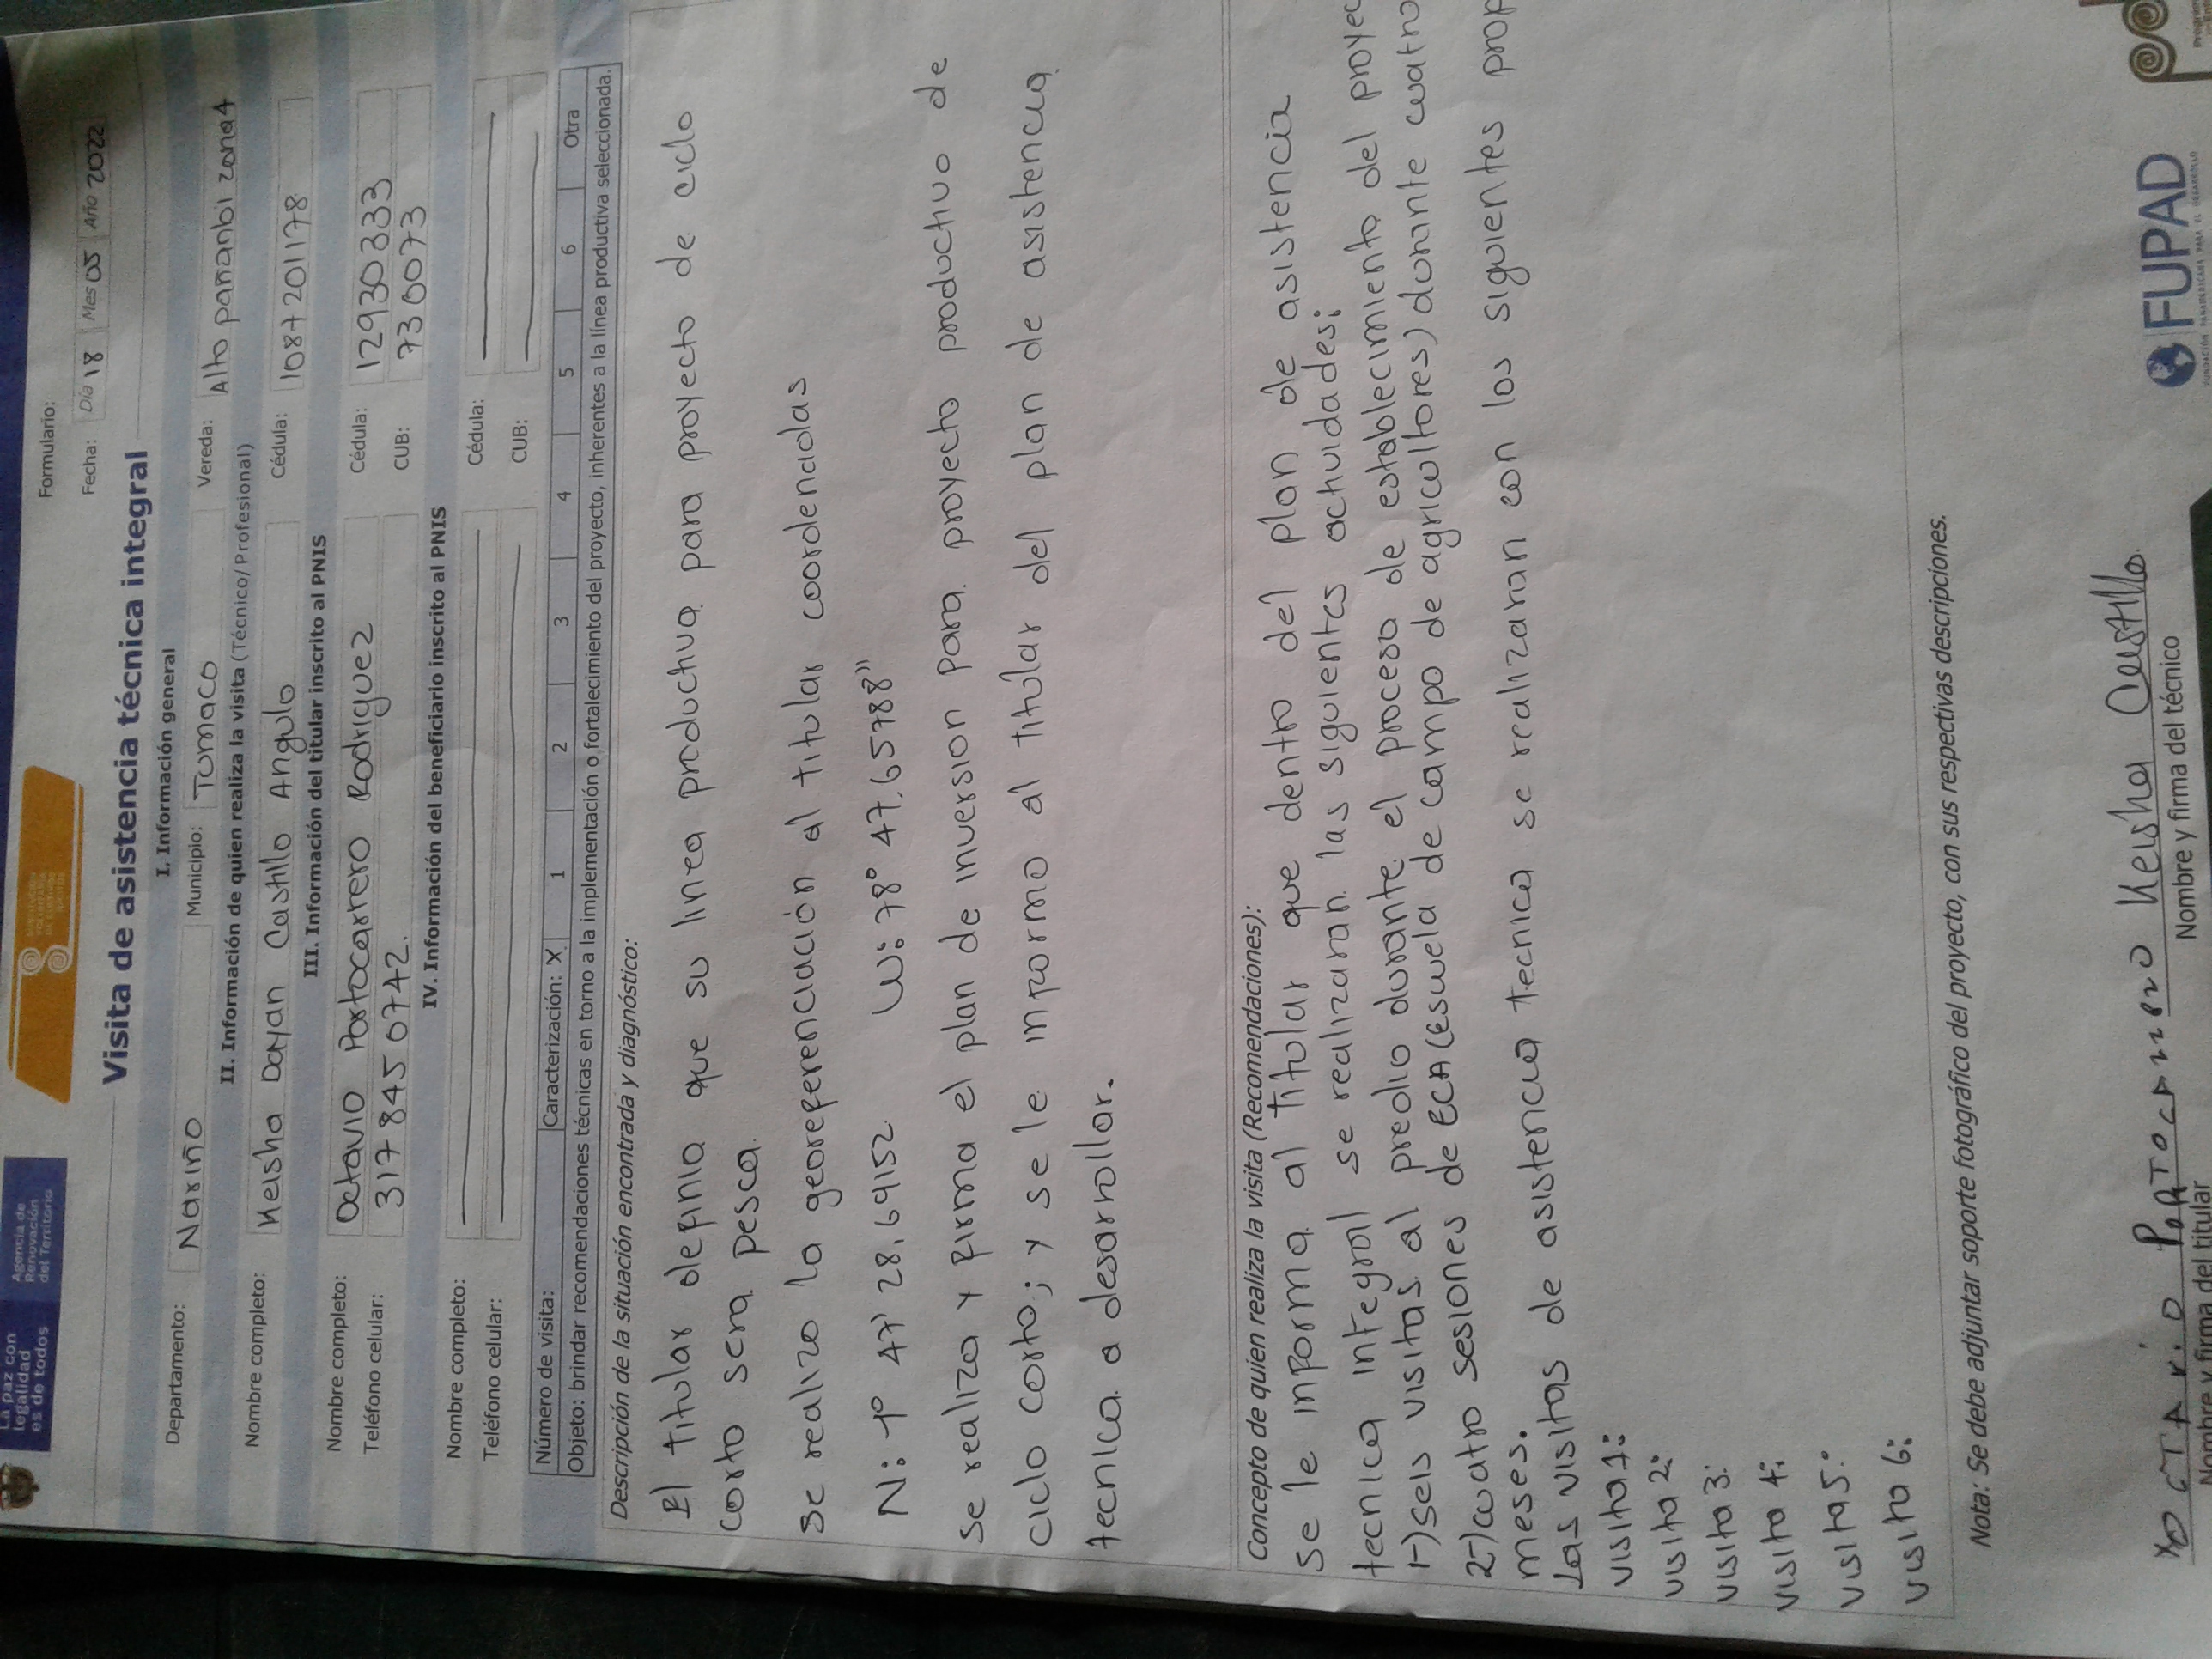 La paz con
legalidad
es de todos
Agencia de
Renovación
del Territorio
Formulario:
Fecha: Día 18 Mes 05 Año 2022
Visita de asistencia técnica integral
I. Información general
Departamento: Nariño Municipio: Tumaco Vereda: Alto pananbi zona4
II. Información de quien realiza la visita (Técnico/Profesional)
Nombre completo: Keisha Dayan Castillo Angulo Cédula: 1087201178
III. Información del titular inscrito al PNIS
Nombre completo: Octavio Portocarrero Rodriguez Cédula: 12930333
Teléfono celular: 317 845 0742. CUB: 730073
IV. Información del beneficiario inscrito al PNIS
Nombre completo: Cédula:
Teléfono celular: CUB:
Número de visita: Caracterización: X 1 2 3 4 5 6 Otra
Objeto: brindar recomendaciones técnicas en torno a la implementación o fortalecimiento del proyecto, inherentes a la línea productiva seleccionada.
Descripción de la situación encontrada y diagnóstico:
El titular definio que su linea productiva para proyecto de ciclo
corto sera pesca.
se realizo la georeferenciacion al titular coordenadas
N: 1° 47' 28,69152 W: 78° 47,65788"
se realizo y firma el plan de inversion para proyecto productivo de
ciclo corto; y se le informo al titular del plan de asistencia
tecnica a desarrollar.
Concepto de quien realiza la visita (Recomendaciones):
se le informa al titular que dentro del plan de asistencia
tecnica integral se realizaran las siguientes actividades:
1-) seis visitas al predio durante el proceso de establecimiento del proyec
2-) cuatro sesiones de ECA (escuela de campo de agricultores) durante cuatro
meses.
Las visitas de asistencia tecnica se realizaran con los siguientes prop
visita 1:
visita 2:
visita 3:
visita 4:
visita 5:
visita 6:
Nota: Se debe adjuntar soporte fotográfico del proyecto, con sus respectivas descripciones.
OCTAViO PORTOCARRERO Keisha Castillo
Nombre y firma del titular Nombre y firma del técnico
FUPAD
FUNDACIÓN PANAMERICANA PARA EL DESARROLLO